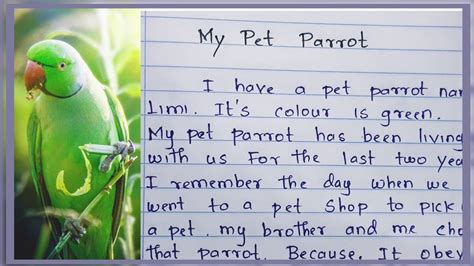 My Pet Parrot
I have a pet parrot
It's colour is green.
My pet parrot has been living
with us For the last two yea
I remember the day when we
went to a pet Shop to pick
a pet. my brother and me
that parrot. Because. It obey